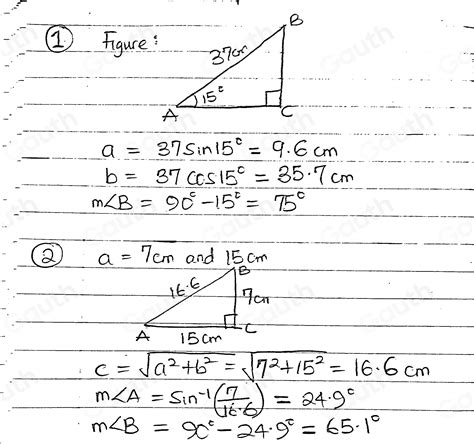 ① Figure:
B
37cm
15°
A
C
a = 37sin15° = 9.6 cm
b = 37 cos15° = 35.7 cm
m∠B = 90° - 15° = 75°
② a = 7cm and 15cm
B
16.6
7cm
A
C
15cm
c = √a²+b² = √7²+15² = 16.6 cm
m∠A = sin⁻¹(7/16.6) = 24.9°
m∠B = 90° - 24.9° = 65.1°
Gauth